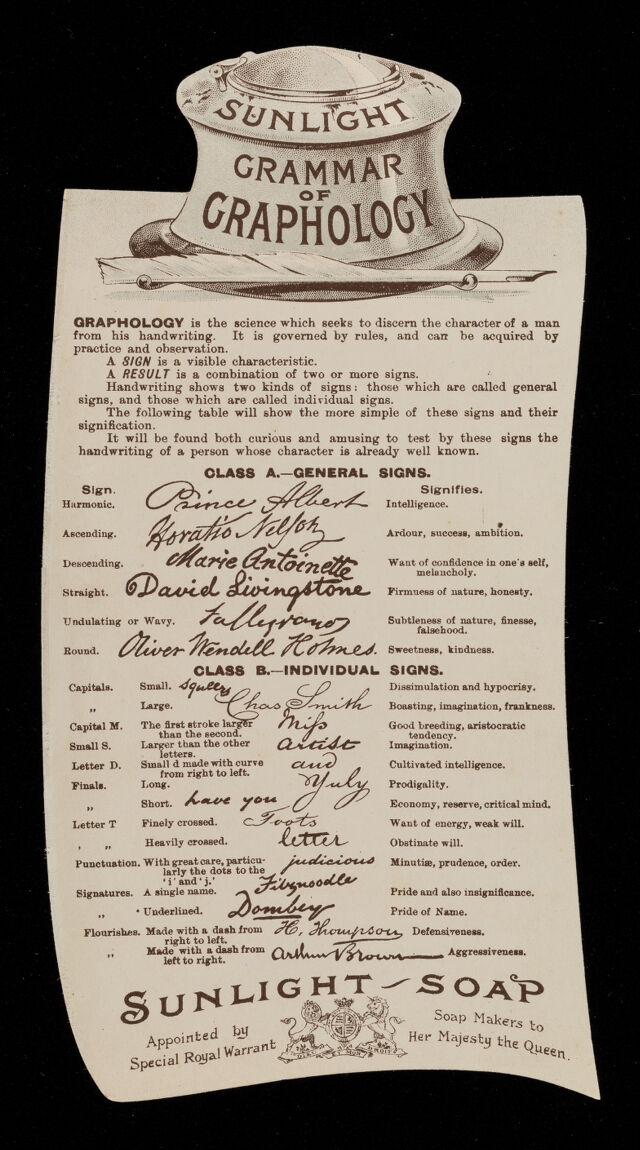 SUNLIGHT
GRAMMAR
OF
GRAPHOLOGY
GRAPHOLOGY is the science which seeks to discern the character of a man
from his handwriting. It is governed by rules, and can be acquired by
practice and observation.
A SIGN is a visible characteristic.
A RESULT is a combination of two or more signs.
Handwriting shows two kinds of signs: those which are called general
signs, and those which are called individual signs.
The following table will show the more simple of these signs and their
signification.
It will be found both curious and amusing to test by these signs the
handwriting of a person whose character is already well known.
CLASS A.—GENERAL SIGNS.
Sign. Signifies.
Harmonic. Prince Albert Intelligence.
Ascending. Horatio Nelson Ardour, success, ambition.
Descending. Marie Antoinette Want of confidence in one's self,
melancholy.
Straight. David Livingstone Firmness of nature, honesty.
Undulating or Wavy. Subtleness of nature, finesse,
falsehood.
Round. Oliver Wendell Holmes. Sweetness, kindness.
CLASS B.—INDIVIDUAL SIGNS.
Capitals. Small. squeers Dissimulation and hypocrisy.
„ Large. Chas Smith Boasting, imagination, frankness.
Capital M. The first stroke larger Miss Good breeding, aristocratic
than the second. tendency.
Small S. Larger than the other artist Imagination.
letters.
Letter D. Small d made with curve and Cultivated intelligence.
from right to left.
Finals. Long. July Prodigality.
„ Short. have you Economy, reserve, critical mind.
Letter T Finely crossed. Toots Want of energy, weak will.
, „ Heavily crossed. letter Obstinate will.
Punctuation. With great care, particu- judicious Minutiæ, prudence, order.
larly the dots to the
'i' and 'j.'
Signatures. A single name. Fibznoodle Pride and also insignificance.
„ Underlined. Dombey Pride of Name.
Flourishes. Made with a dash from H. Thompson Defensiveness.
right to left.
„ Made with a dash from Arthur Brown Aggressiveness.
left to right.
SUNLIGHT SOAP
Appointed by
Special Royal Warrant
Soap Makers to
Her Majesty the Queen.